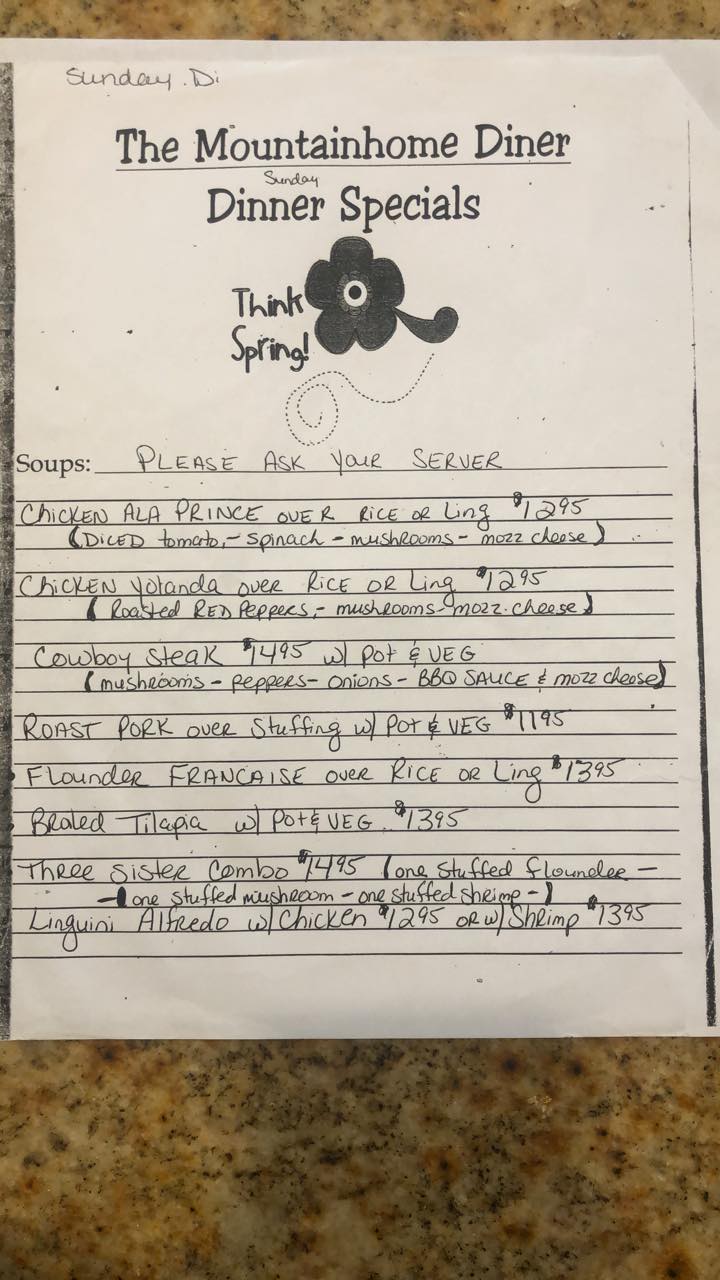 Sunday. Di
The Mountainhome Diner
Sunday
Dinner Specials
Think
Spring!
Soups: PLEASE ASK YOUR SERVER
CHICKEN ALA PRINCE OVER RICE OR Ling $1295
(DICED tomato, - spinach - mushrooms - mozz cheese)
CHICKEN Yolanda OVER RICE OR Ling $1295
(Roasted RED PEPPERS, - mushrooms - mozz. cheese)
Cowboy Steak $1495 w/ Pot & VEG
(mushrooms - peppers - onions - BBQ SAUCE & mozz cheese)
ROAST PORK over Stuffing w/ Pot & VEG $1195
Flounder FRANCAISE over RICE OR Ling $1395
Broled Tilapia w/ Pot & VEG. $1395
Three Sister Combo $1495 (one stuffed flounder -
- one stuffed mushroom - one stuffed shrimp -)
Linguini Alfredo w/ Chicken $1295 OR w/ Shrimp $1395